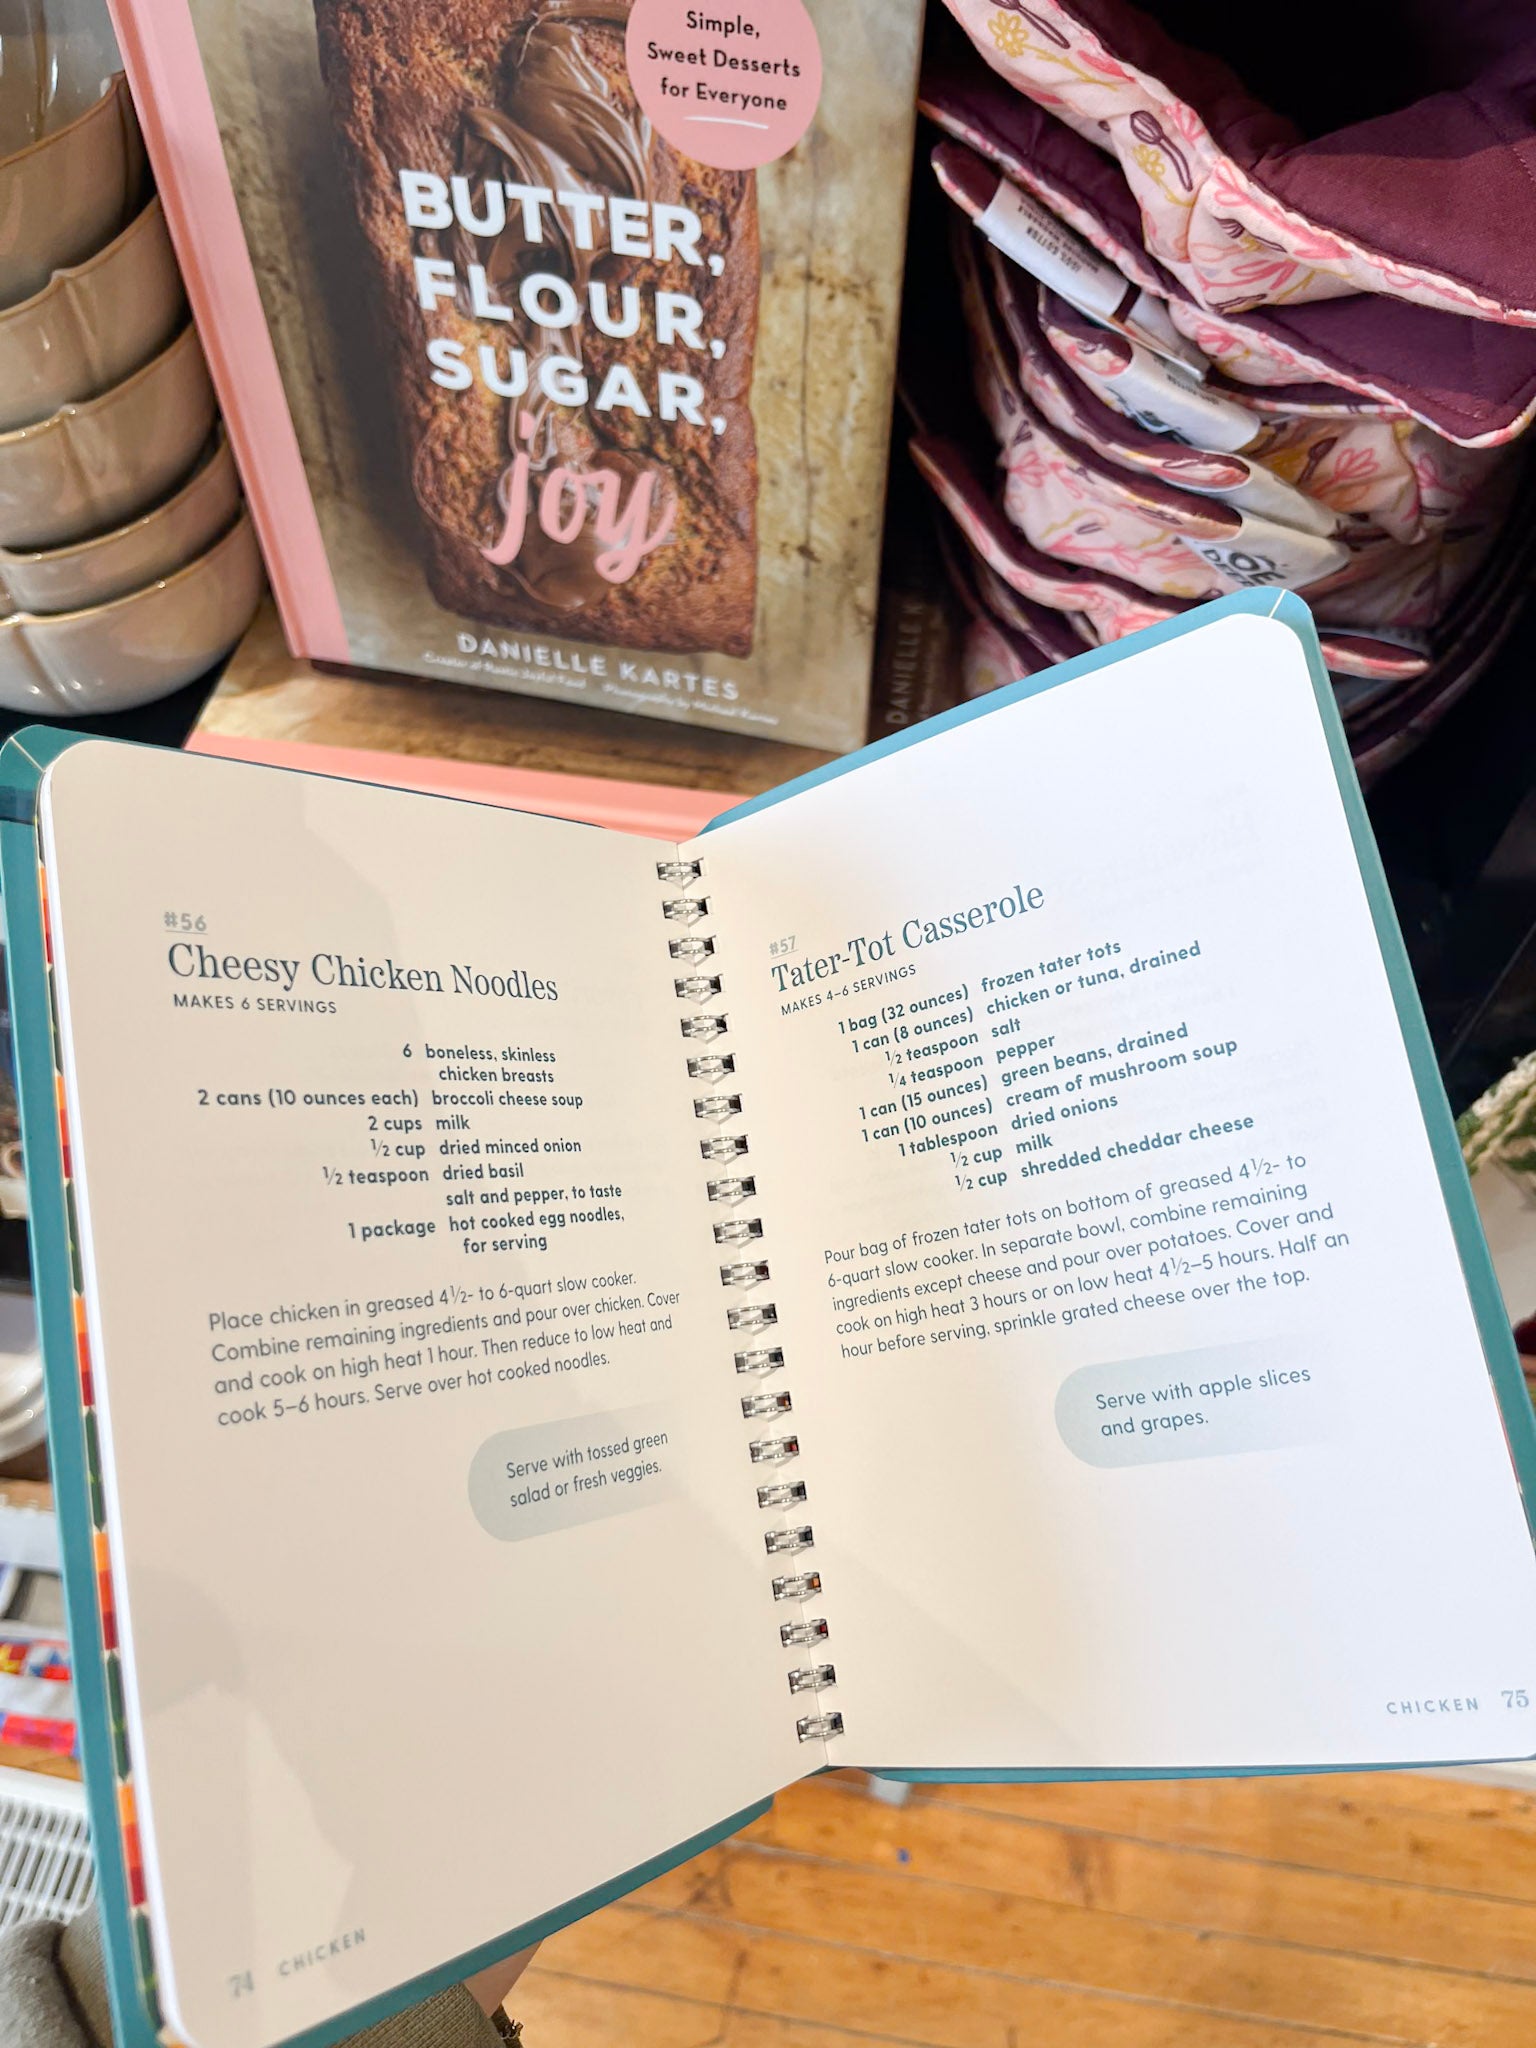 Simple,
Sweet Desserts
for Everyone
BUTTER,
FLOUR,
SUGAR,
joy
DANIELLE KARTES
Photography by Michael Kartes
DANIELLE K
100% COTTON
#56
Cheesy Chicken Noodles
MAKES 6 SERVINGS
6 boneless, skinless
chicken breasts
2 cans (10 ounces each) broccoli cheese soup
2 cups milk
½ cup dried minced onion
½ teaspoon dried basil
salt and pepper, to taste
1 package hot cooked egg noodles,
for serving
Place chicken in greased 4½- to 6-quart slow cooker.
Combine remaining ingredients and pour over chicken. Cover
and cook on high heat 1 hour. Then reduce to low heat and
cook 5–6 hours. Serve over hot cooked noodles.
Serve with tossed green
salad or fresh veggies.
74 CHICKEN
#57
Tater-Tot Casserole
MAKES 4–6 SERVINGS
1 bag (32 ounces) frozen tater tots
1 can (8 ounces) chicken or tuna, drained
½ teaspoon salt
¼ teaspoon pepper
1 can (15 ounces) green beans, drained
1 can (10 ounces) cream of mushroom soup
1 tablespoon dried onions
½ cup milk
½ cup shredded cheddar cheese
Pour bag of frozen tater tots on bottom of greased 4½- to
6-quart slow cooker. In separate bowl, combine remaining
ingredients except cheese and pour over potatoes. Cover and
cook on high heat 3 hours or on low heat 4½–5 hours. Half an
hour before serving, sprinkle grated cheese over the top.
Serve with apple slices
and grapes.
CHICKEN 75